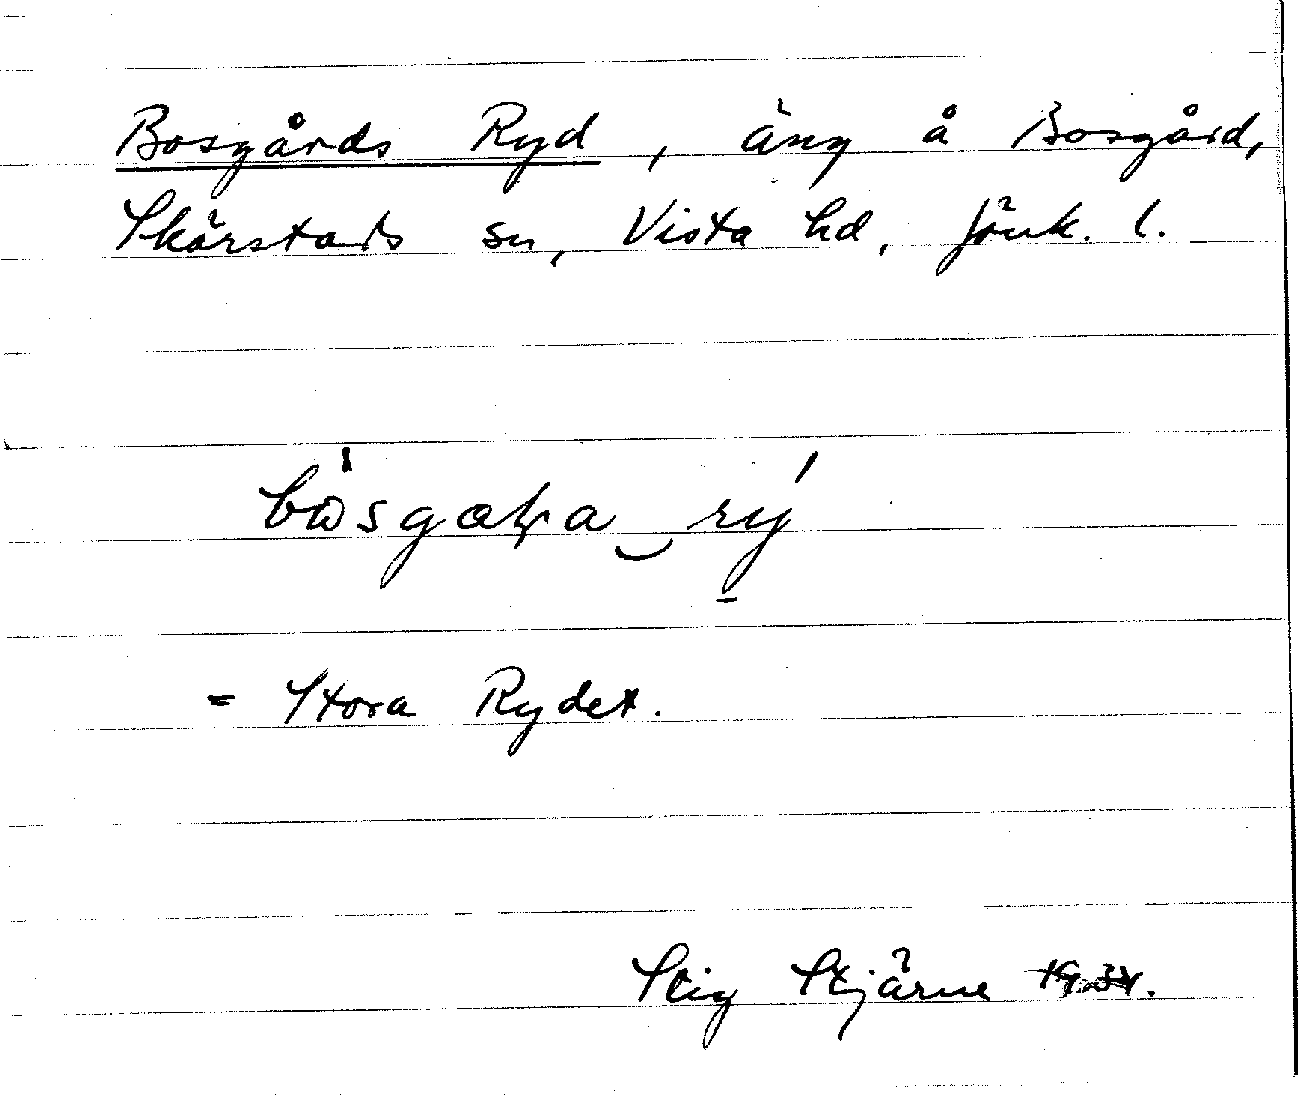 Bosgårds Ryd, äng å Bosgård,
Skärstads sn, Vista hd, Jönk. l.
= Stora Rydet.
Stig Stjärne 1934.